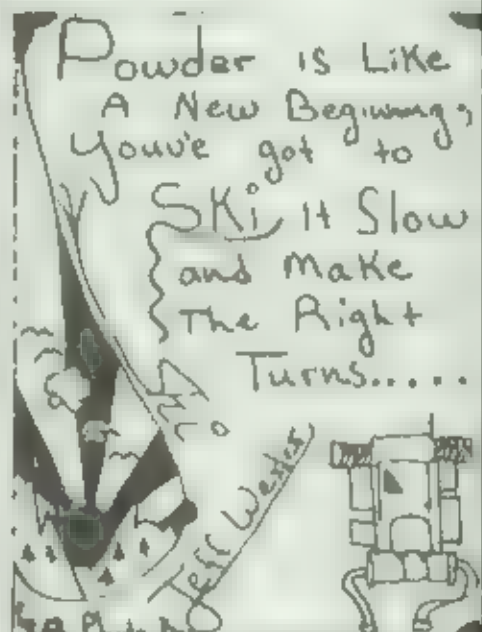 Powder is Like
A New Beginning,
Youv'e got to
Ski it Slow
and Make
The Right
Turns.....